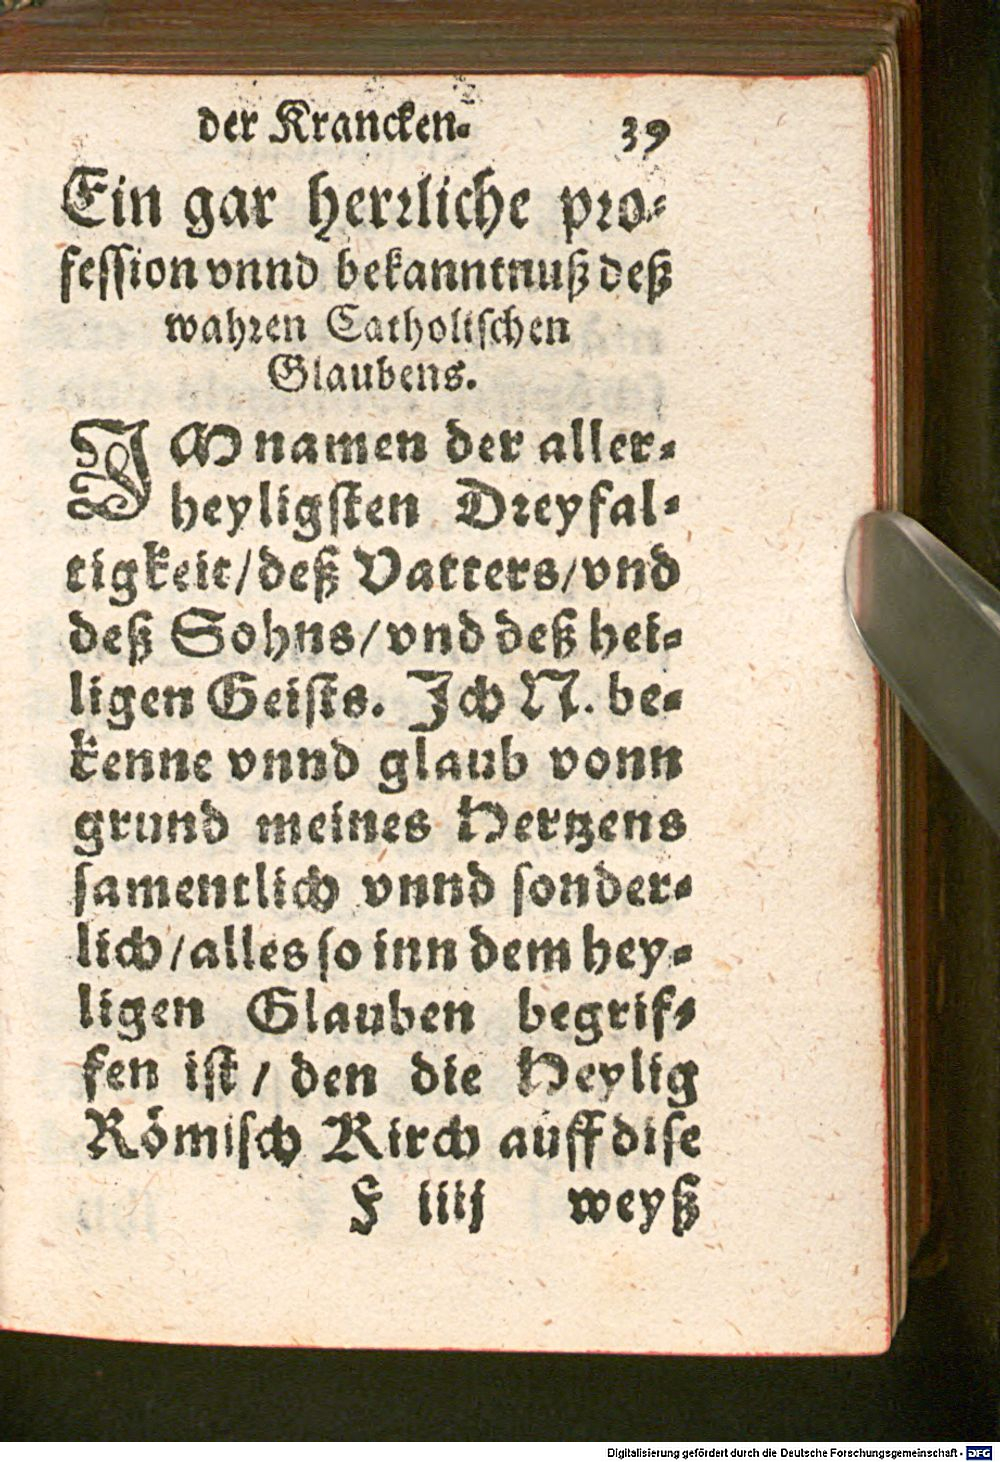 der Krancken. 39
Ein gar herrliche pro-
fession vnnd bekanntnuß deß
wahren Catholischen
Glaubens.
IM namen der aller-
heyligsten Dreyfal-
tigkeit/deß Vatters/vnd
deß Sohns/vnd deß hei-
ligen Geists. Ich N. be-
kenne vnnd glaub vonn
grund meines Hertzens
samentlich vnnd sonder-
lich/alles so inn dem hey-
ligen Glauben begrif-
fen ist/den die Heylig
Römisch Kirch auff dise
F iiij weyß
Digitalisierung gefördert durch die Deutsche Forschungsgemeinschaft - DFG